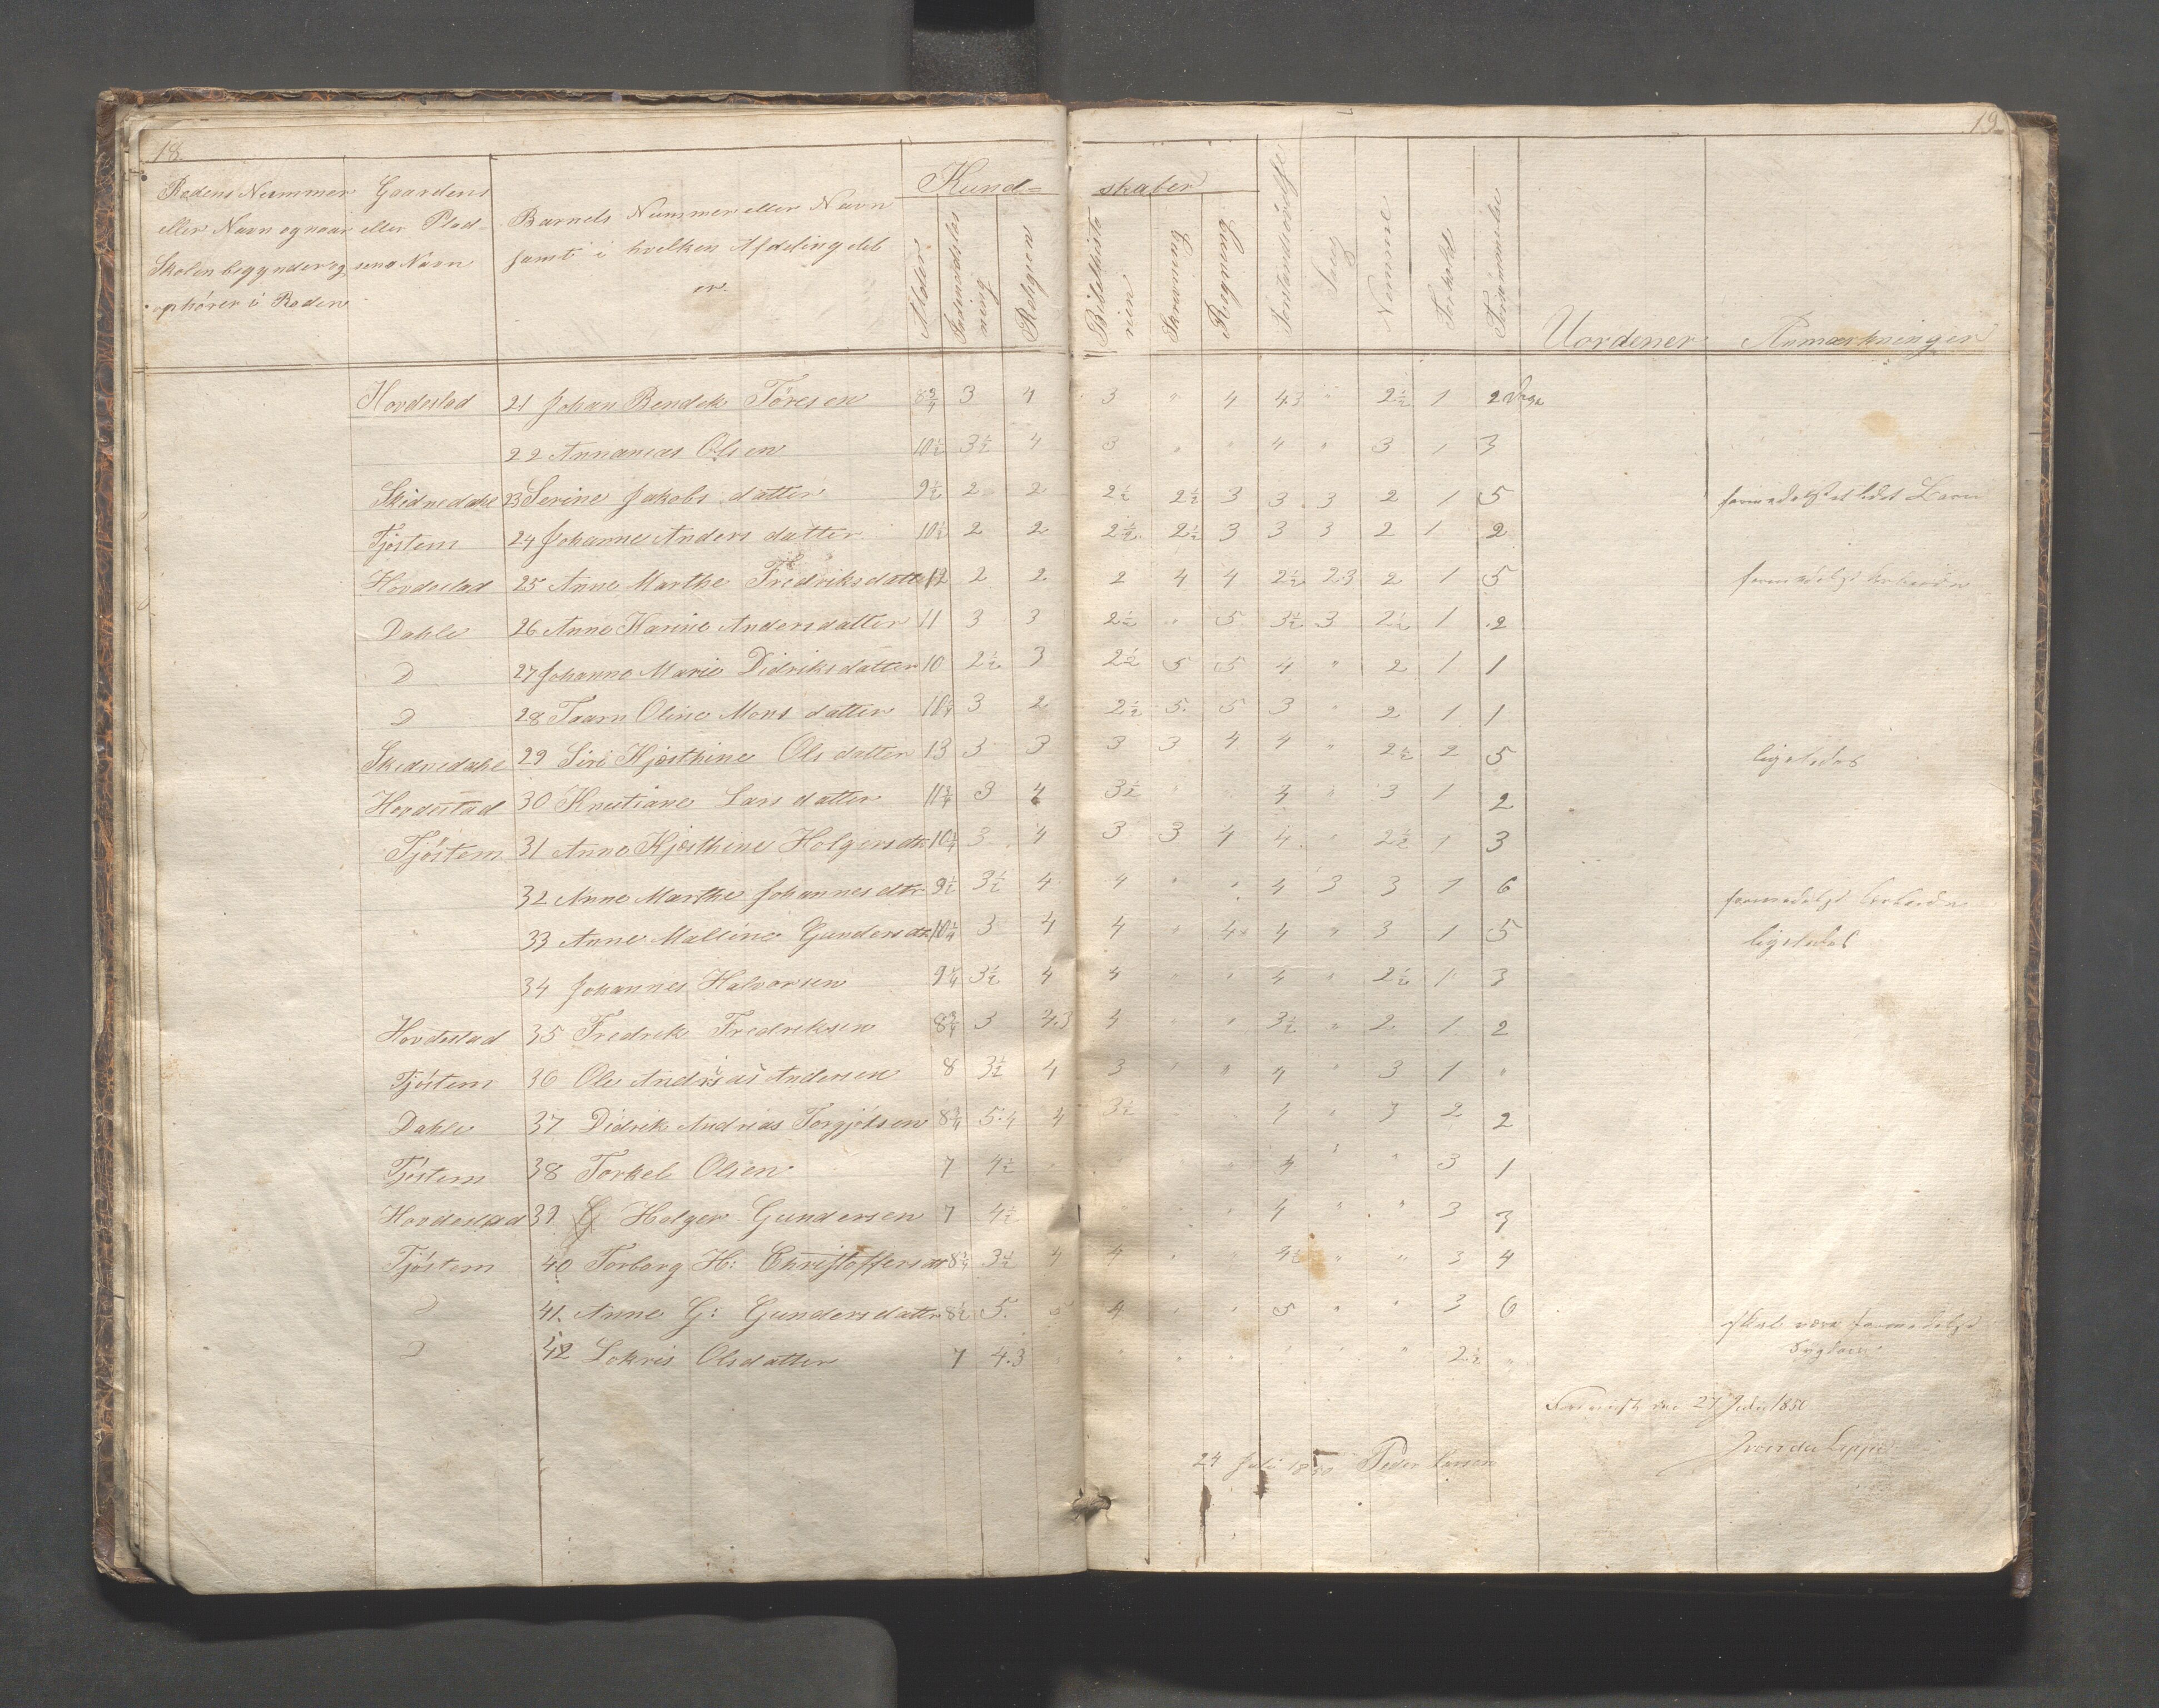 18.
19.
Rodens Nummer eller Navn og naar Skolen begynder og ophörer i Roden
Gaardens eller Pladsens Navn
Barnets Nummer eller Navn samt i hvilken Afdeling det er
Kund= skaber
Alder
Religion
Skrivning
Regning
Sang
Nemme
Forhold
Forsømmelse
Uordener
Anmærkninger
Hovdestad 21 Johan Bendek Töresen 8 3/4 3 4 3 " 4 4.3 " 2 1/2 1 2 Dage
22 Annanias Olsen 10 1/2 3 1/2 4 3 " " 4 " 3 1 3
Skidnedahl 23 Serine Jakobs datter 9 1/2 2 2 2 1/2 2 1/2 3 3 3 2 1 5
Tjöstem 24 Johanne Anders datter 10 1/2 2 2 2 1/2 2 1/2 3 3 3 2 1 2
Hovdestad 25 Anne Marthe Fredriksdatter 12 2 2 2 4 4 2 1/2 2.3 2 1 5
Dahle 26 Anne Karine Andersdatter 11 3 3 2 1/2 " 5 3 1/2 3 2 1/2 1 2
D 27 Johanne Marie Didriksdatter 10 2 1/2 3 2 1/2 5 5 4 " 2 1 1
D 28 Taarn Oline Mons datter 10 3/4 3 2 2 1/2 5 5 3 " 2 1 1
Skidnedahl 29 Siri Kjersthine Ols datter 13 3 3 3 3 4 4 " 2 1/2 2 5 ligeledes
Hovdestad 30 Kristiane Lars datter 11 3/4 3 4 3 1/2 " " 4 " 3 1 2
Tjöstem 31 Anne Kjersthine Holgersdtr 10 1/4 3 4 3 3 4 4 " 2 1/2 1 3
32 Anne Marthe Johannesdtr 9 1/2 3 1/2 4 4 " " 4 3 3 1 6
33 Anne Malline Gundersdtr 10 1/4 3 4 4 " 4 4 " 3 1 5 ligeledes
34 Johannes Halvorsen 9 1/4 3 1/2 4 4 " " 4 " 2 1/2 1 3
Hovdestad 35 Fredrek Fredriksen 8 3/4 3 4.3 4 " " 3 1/2 " 2 1 2
Tjöstem 36 Ole Andreas Andersen 8 3 1/2 4 3 " " 4 " 3 1 "
Dahle 37 Didrik Andreas Torgjelsen 8 3/4 5.4 4 3 1/2 4 " 3 2 2
Tjöstem 38 Torkel Olsen 7 4 1/2 4 " " 3 1
Hovdestad 39 Holger Gundersen 7 4 1/2 4 " " 3 3
Tjöstem 40 Torborg H: Christoffersdtr 8 3/4 3 1/2 4 4 " " 4 1/2 " " 3 4
D 41. Anne G: Gundersdatter 8 1/2 5. 5 4 " " 5 " " 3 6
D 42 Lokris Olsdatter 7 4.3 " " " " " " 2 1/2 "
24 Juli 1850 Peder Larsen
den 27 Juli 1850